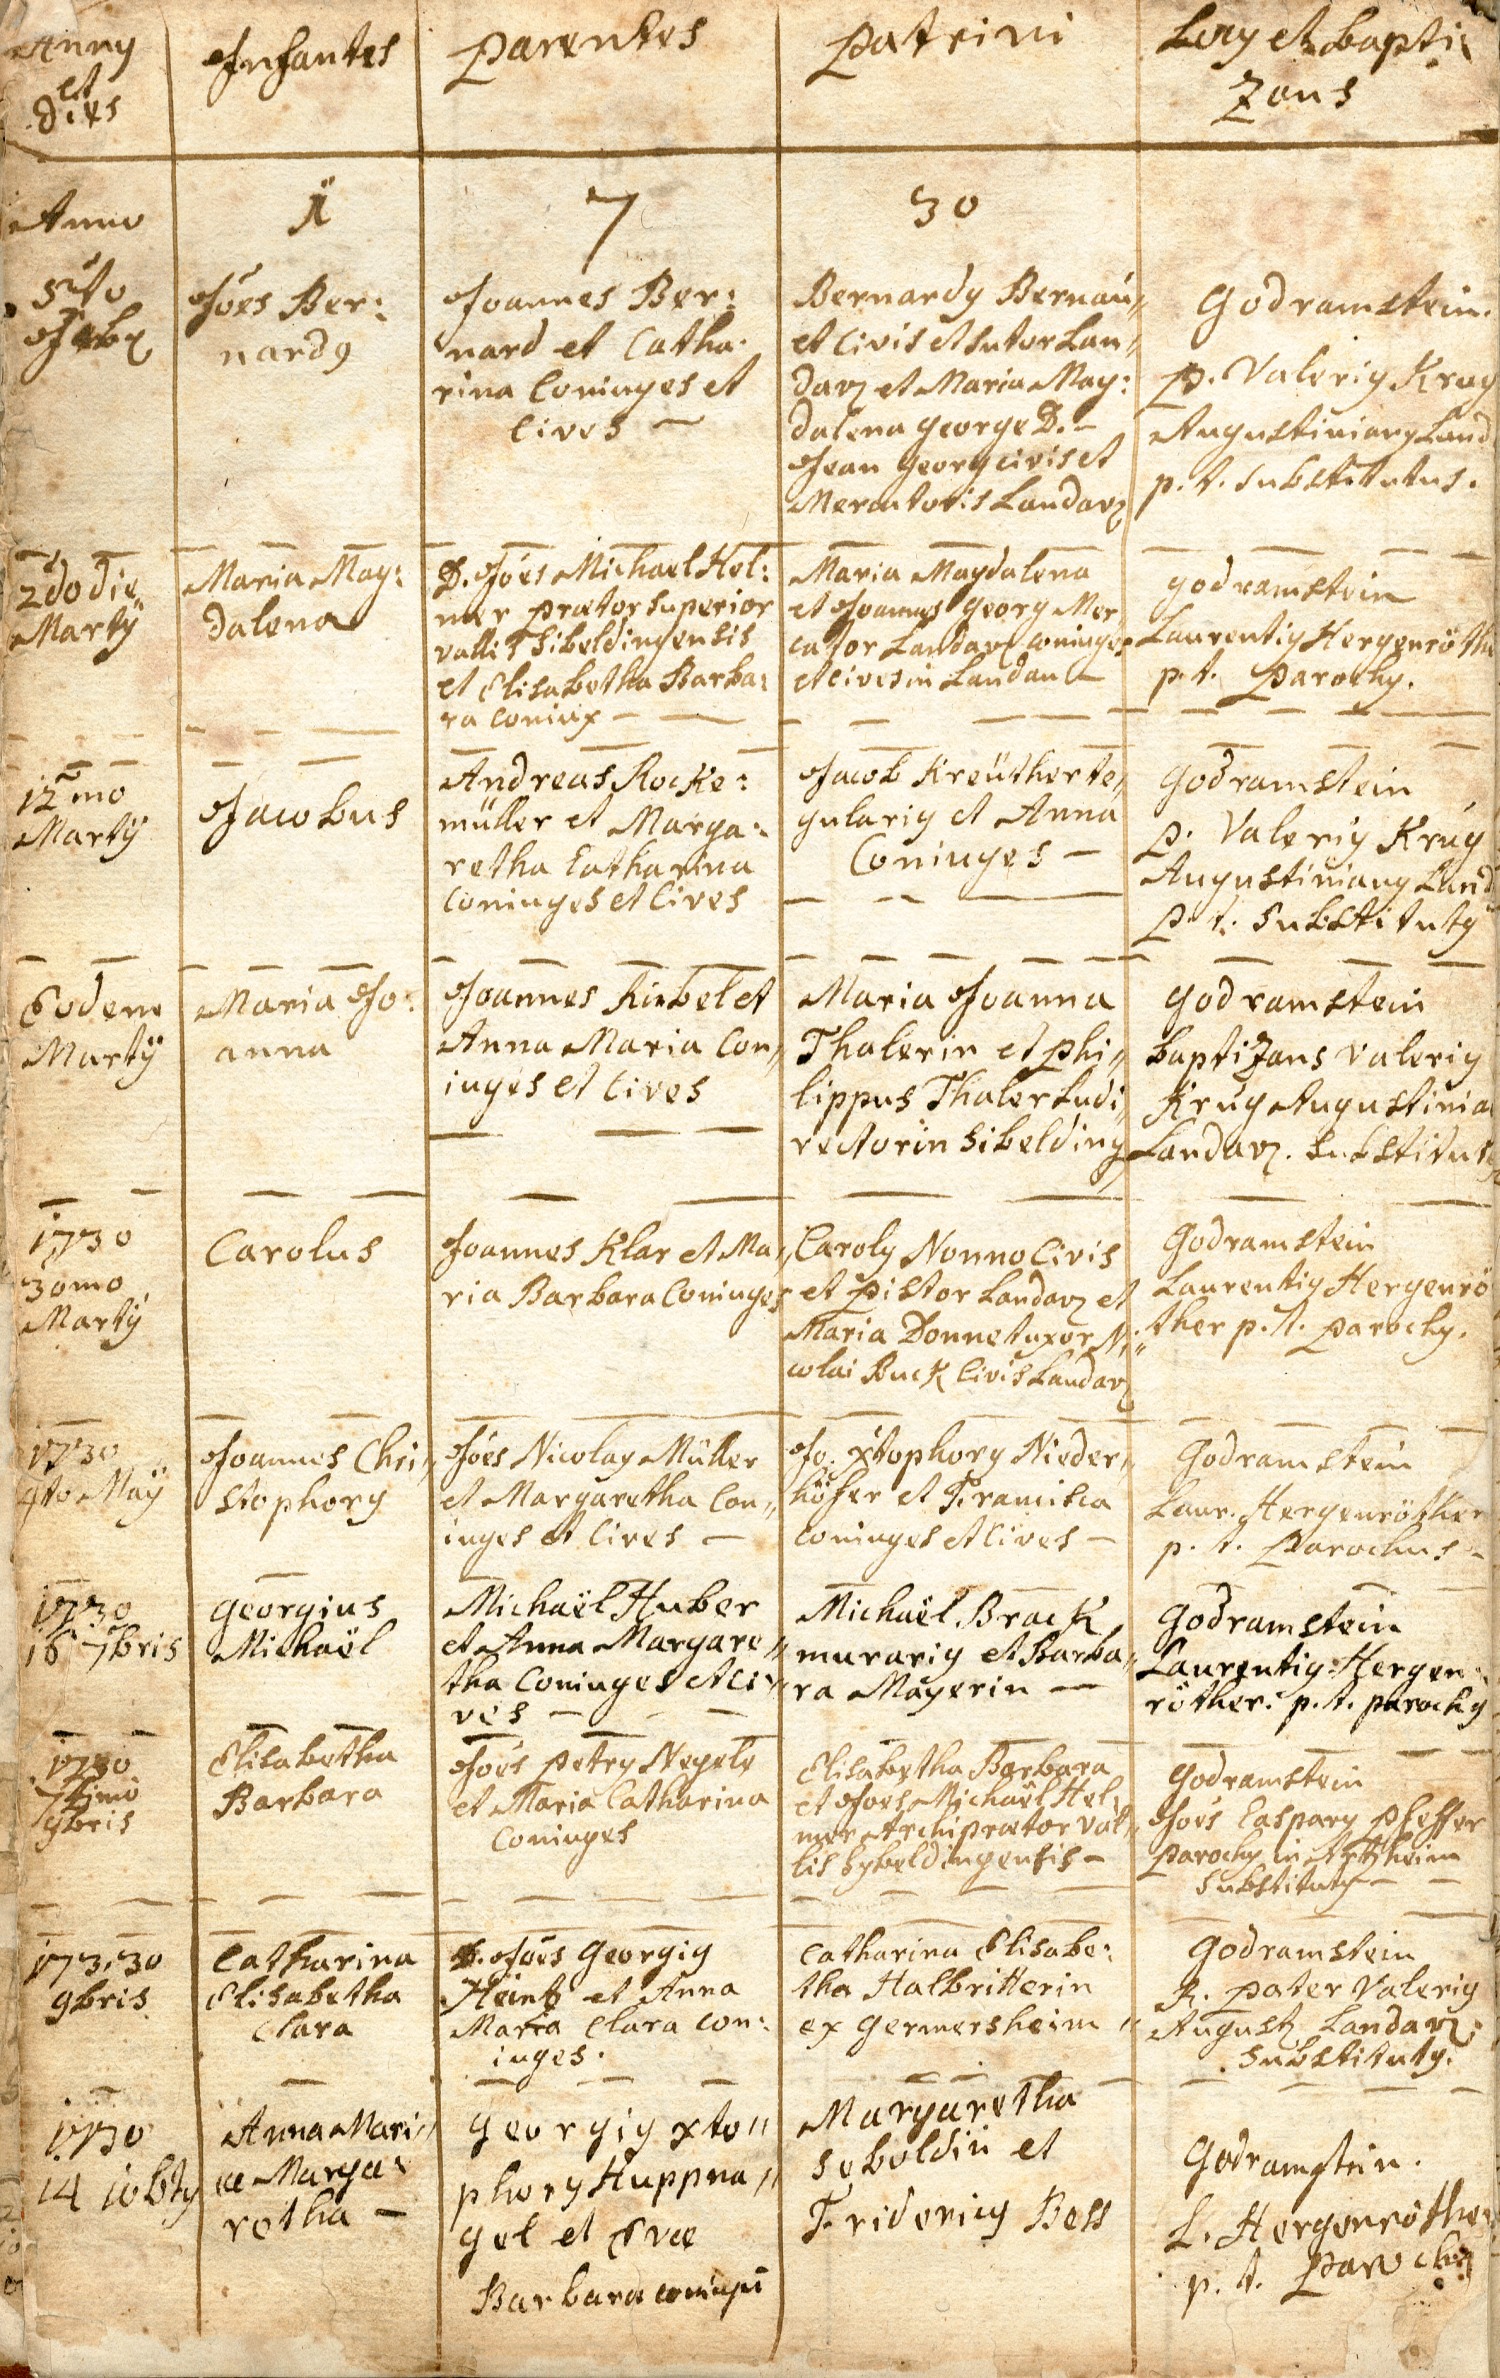 Anny
et
dies
Infantes
Parentes
Patrini
Locy et bapti:
zans
Anno
1
7
30
5to
Febr
Jōes Ber:
nardy
Joannes Ber:
nard et Catha:
rina Coniuges et
Cives —
Bernardy Bernau"
et Civis et sutor Lan"
dav et Maria Mag:
dalena george D. —
Jean georg civis et
Mercatoris Landav
Godramstein.
P. Valeriy Krug
Augustiniany Land
p. t. substitutus.
2do die
Martÿ
Maria Mag:
dalena
D. Joēs Michael Hel:
mer prætor superior
vallis Sibeldingensis
et Elisabetha Barba:
ra Coniux —
Maria Magdalena
et Joannes georg Mer
cator Landav coniuges
et cives in Landau —
godramstein
Laurentiy Hergenröthe
p. t. Parochy.
12mo
Martÿ
Jacobus
Andreas Rocke:
müller et Marga:
retha Catharina
Coniuges et Cives
Jacob Kreüther te"
gulariy et Anna
Coniuges —
Godramstein
P. Valeriy Krug
Augustiniany Land
P. t. substituty
Eodem
Martÿ
Maria Jo:
anna
Joannes Kirbel et
Anna Maria Con"
iuges et Cives
Maria Joanna
Thalerin et Phi"
lippus Thaler Ludi"
rector in Sibelding
Godramstein
baptizans Valeriy
Krug Augustinia
Landav. substitus
1730
30mo
Martÿ
Carolus
Joannes Klar et Ma"
ria Barbara Coniuges
Caroly Nonno Civis
et Pistor Landav et
Maria Donnet uxor Ni"
colai Buck Civis Landav
Godramstein
Laurentiy Hergenrö
ther p. t. Parochy.
1730
4to Maÿ
Joannes Chri"
stophory
Jōes Nicolay Müller
et Margaretha Con"
iuges et Cives —
Jo: Xtophory Nieder"
höfer et Francisca
Coniuges et Cives —
Godramstein
Laur. Hergenröther
p. t. Parochus —
1730
16 7bris
Georgius
Michaël
Michaël Huber
et Anna Margare"
tha Coniuges et Ci"
ves —
Michaël Brack
murariy et Barba"
ra Mayerin —
Godramstein
Laurentiy Hergen:
röther. p. t. parochy
1730
7timo
9bris
Elisabetha
Barbara
Jōes Petry Negele
et Maria Catharina
Coniuges
Elisabetha Barbara
et Joes Michaël Hel"
mer Archiprætor val"
lis Sybeldingensis —
Godramstein
Joēs Caspary Pfeffer
Parochy in Artzheim
Substituty —
173.30
9bris
Catharina
Elisabetha
Clara
D. Joēs Georgiy
Heintz et Anna
Maria Clara Con:
iuges.
Catharina Elisabe:
tha Halbritterin
ex Germersheim "
Godramstein
R. Pater Valeriy
August Landav:
substituty.
1730
14 10bty
Anna Mari"
æ Marga:
retha —
Georgiy Xto"
phory Huppna"
gel et Evæ
Barbara coniugū
Margaretha
Seboldin et
Fridericy Bess
Godramstein.
L. Hergenröther
p. t. Parochy